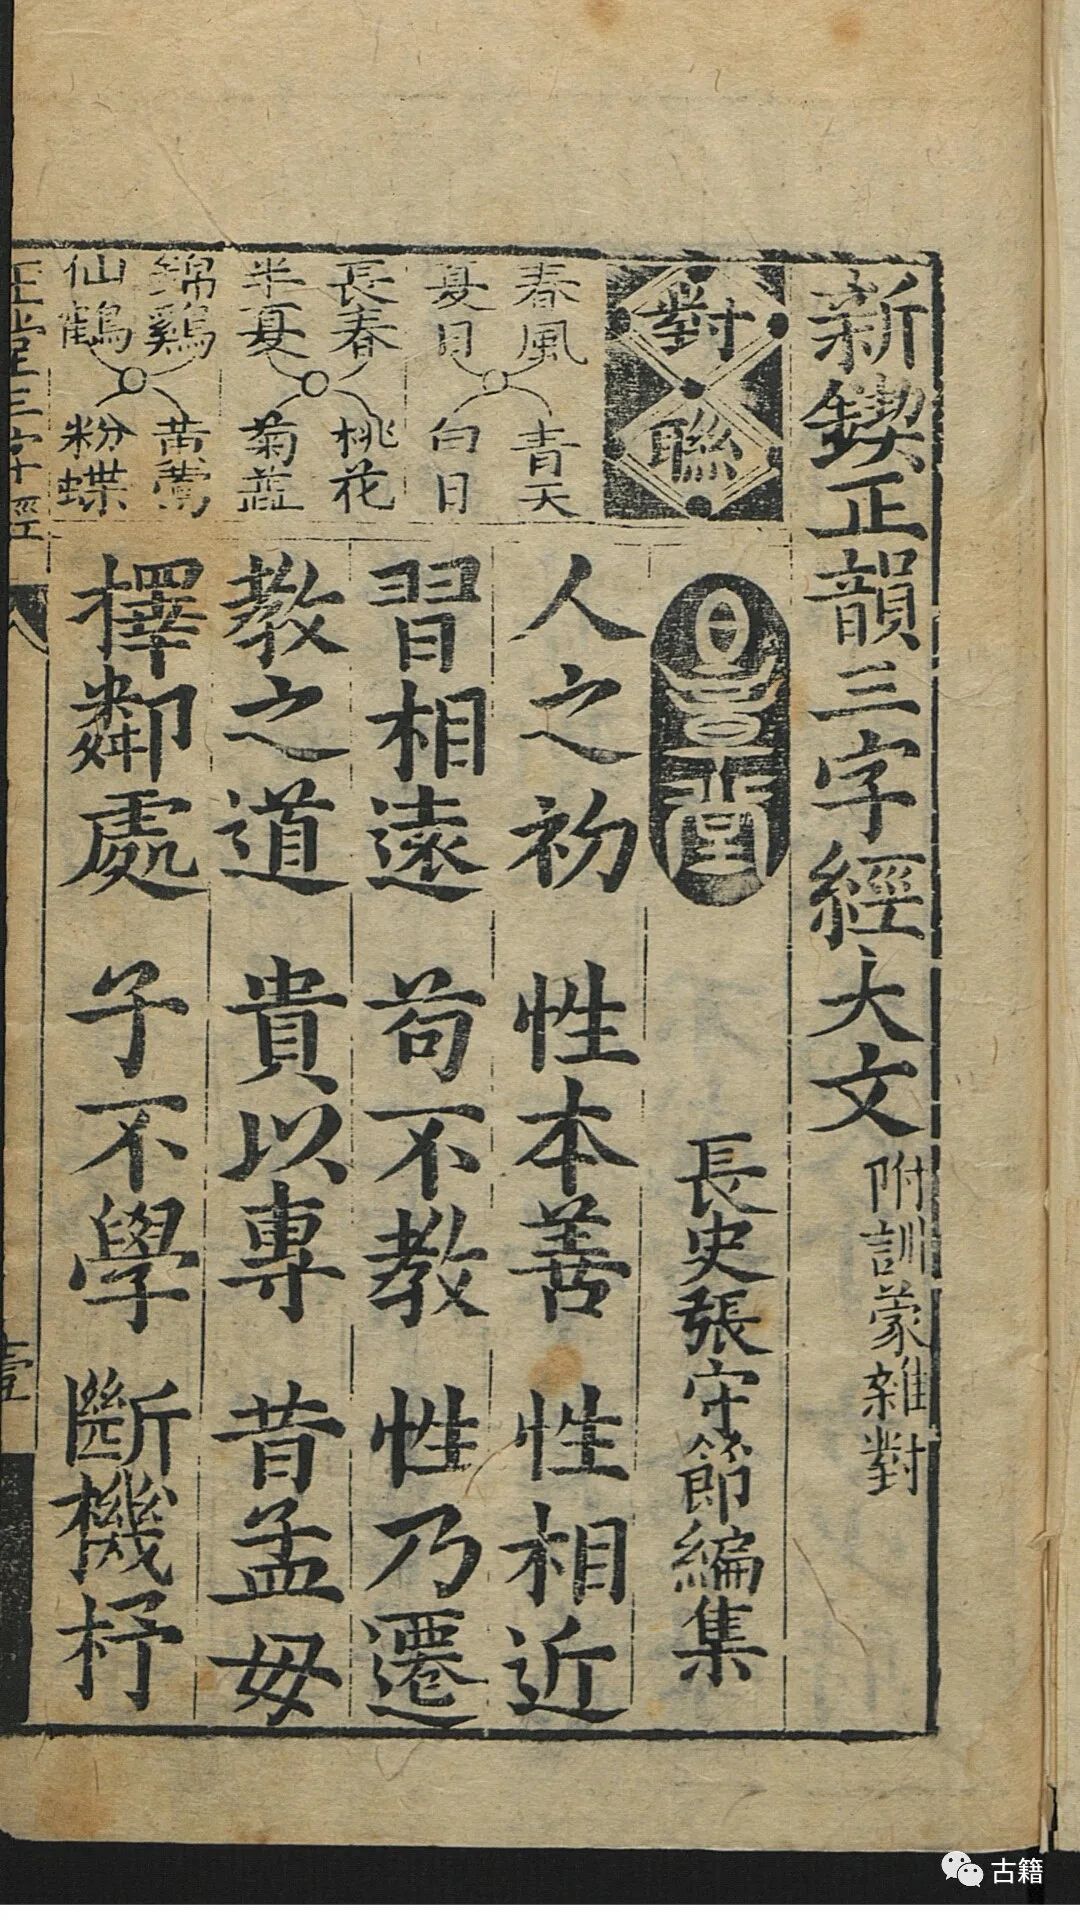 新鍥正韻三字經大文 附訓蒙雜對
對聯
長史張守節編集
春風 青天
夏日 白日
長春 桃花
半夏 菊蕋
錦鷄 黃鶯
仙鶴 粉蝶
人之初 性本善 性相近
習相遠 苟不教 性乃遷
教之道 貴以專 昔孟母
擇鄰處 子不學 斷機杼
三字經
壹
古籍